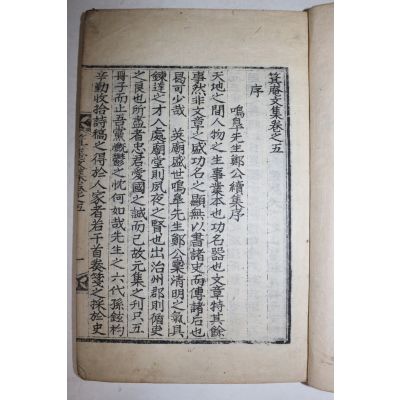 箕庵文集卷之五
序
鳴皐先生鄭公續集序
天地之間人物之生事業本也功名器也文章特其餘
事然非文章之盛功名之顯無以書諸史而傳諸后也
曷可少哉 英廟盛世鳴皐先生鄭公稟清明之氣具
鍊達之才入處廟堂則夙夜之賢也出治州郡則循史
之良也所盡者忠君愛國之誠而已故元集之刊只五
冊子而止吾黨鬱之忱何如哉先生之六代孫鉉杓
辛勤收拾詩稿之得於人家者若干首奏箋之採於史
箕庵文集卷之五
一